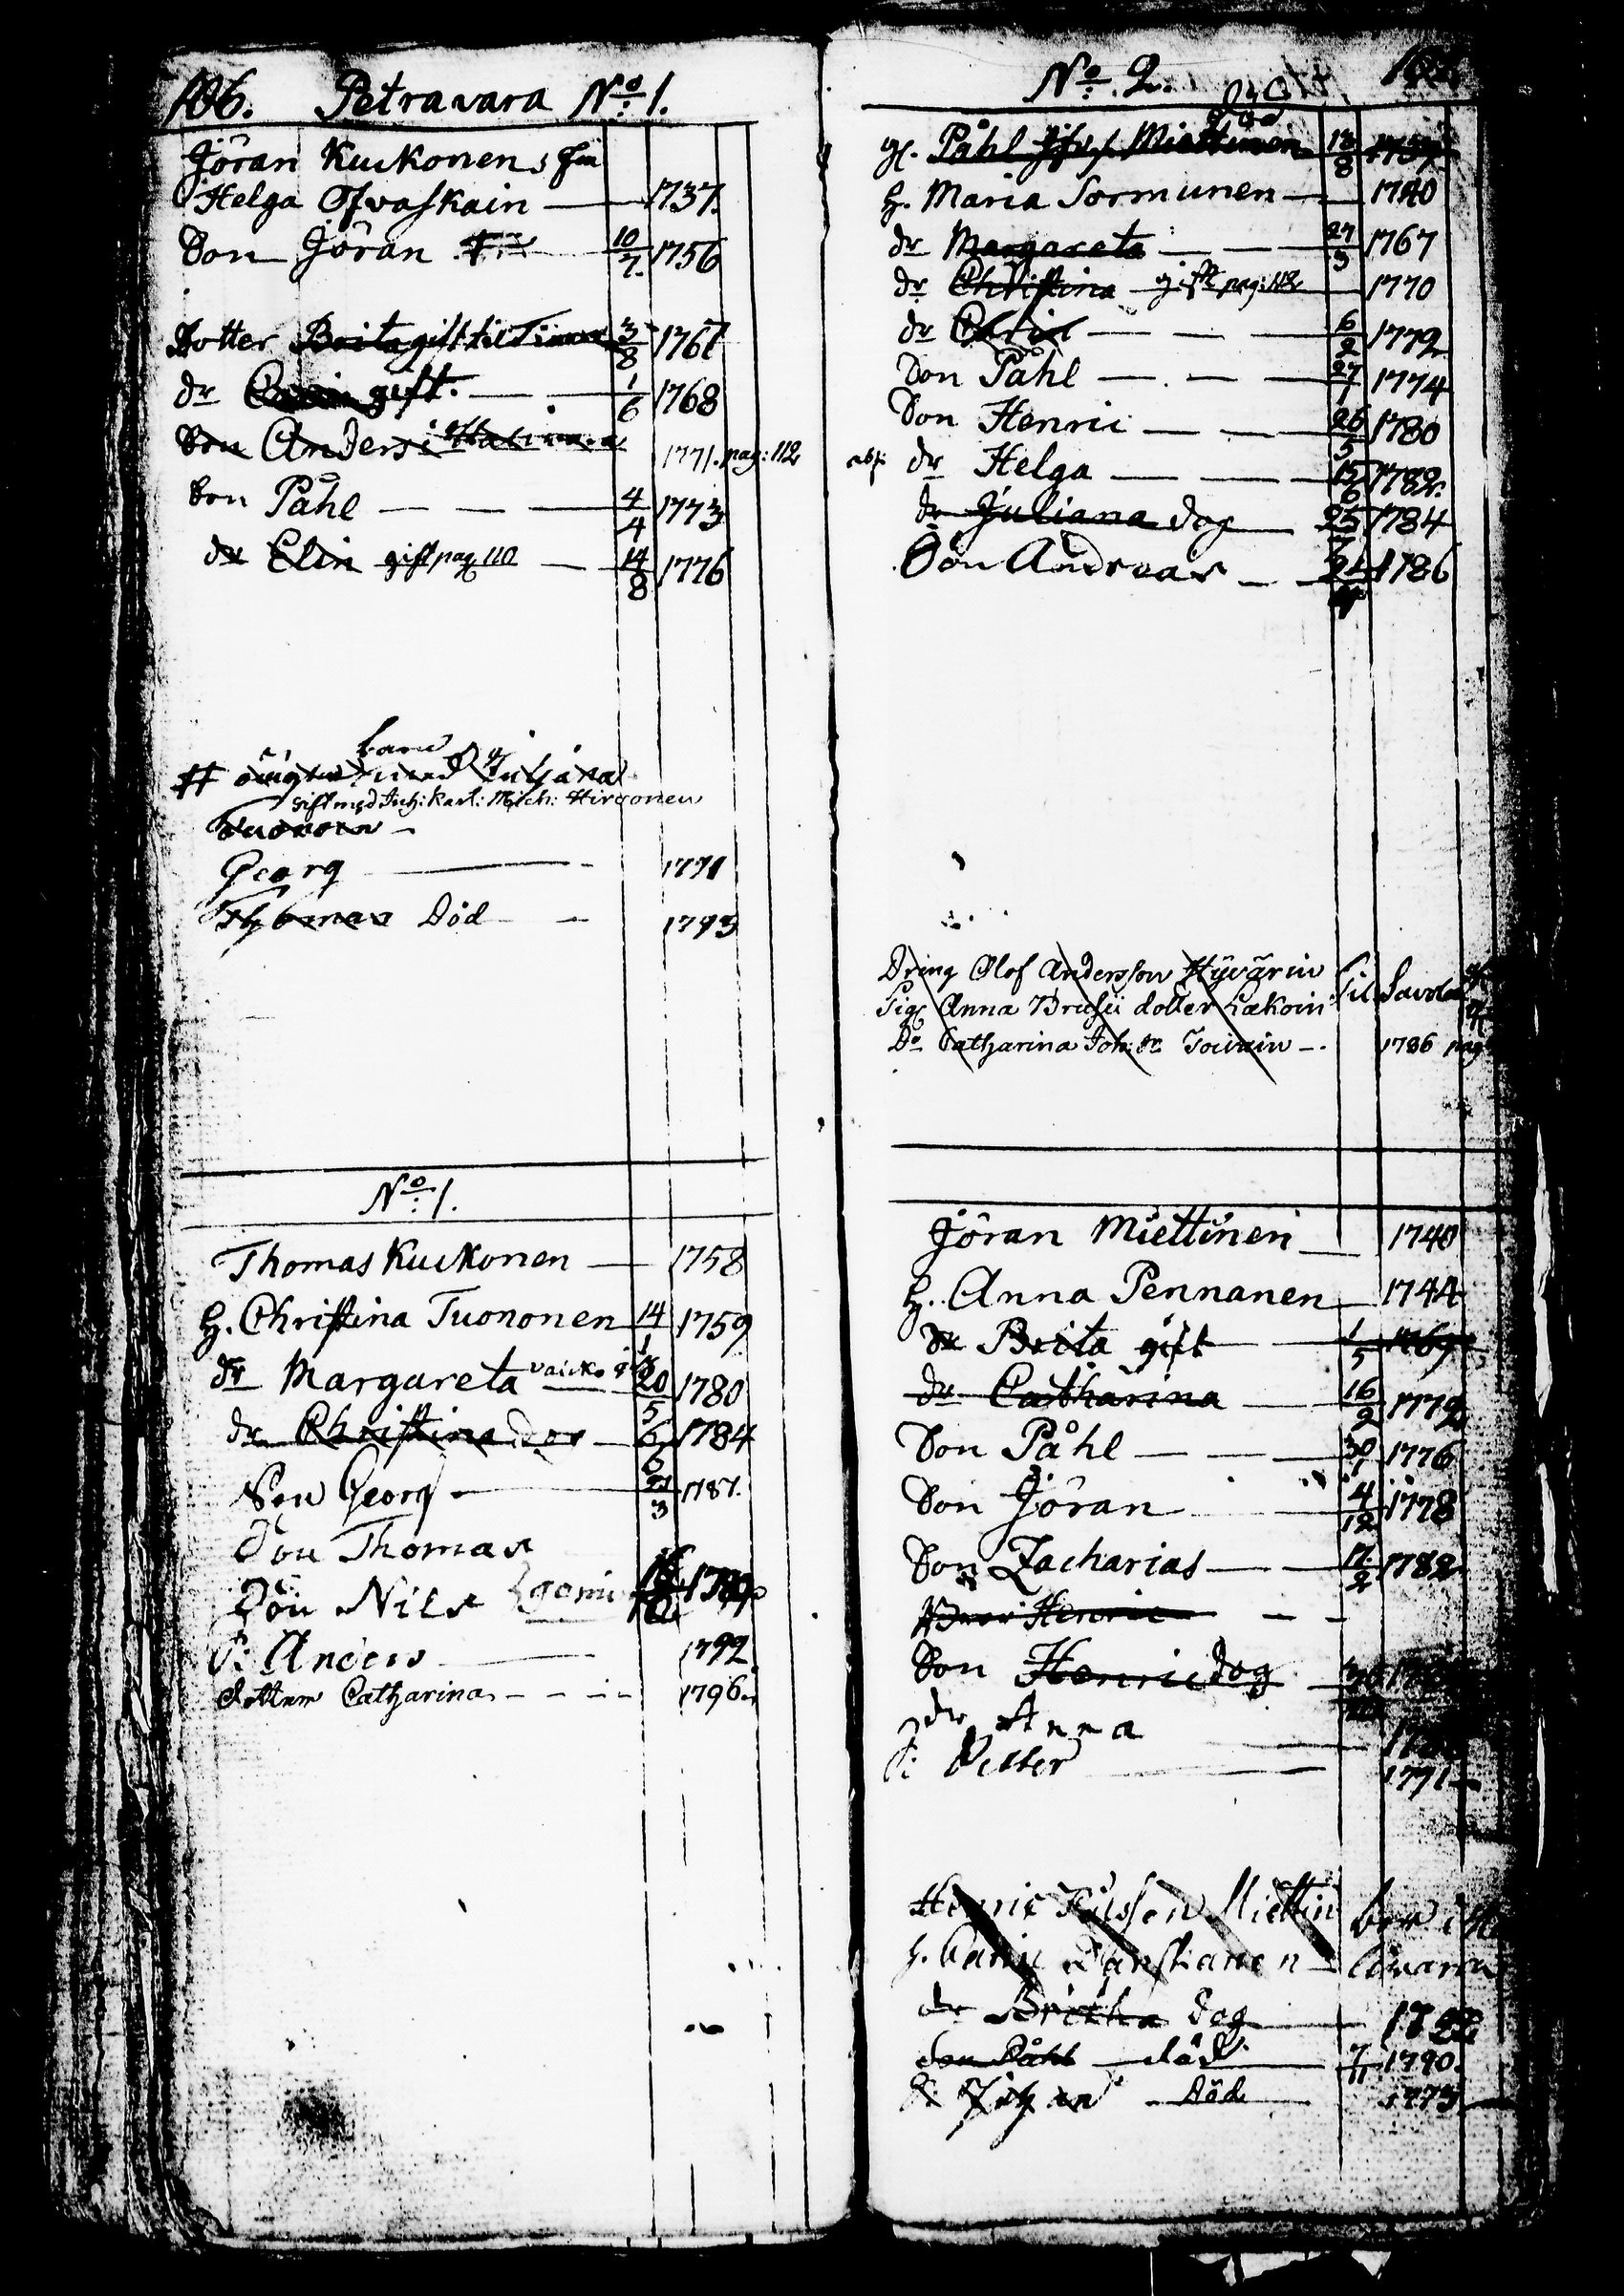 106. Petravara No 1.
Jöran Kuckonens
Helga Ofvaskain 1737.
Son Jöran 10/7. 1756
Dotter Brita gift til 3/8 1761
dr Carin gift. 1/6 1768
Son Anders i 1771. pag: 112
Son Påhl 4/4 1773
dr Elin gift pag 110 14/8 1776
barn
# med Juljana
gift med Joh: Karl: Mich: Hirvonen
Tuonoin
Georg 1771
Död 1793
No 1.
Thomas Kuckonen 1758
h. Christina Tuononen 14/1 1759
dr Margareta 20/5 1780
dr Christina dog 6/6 1784
Son Georg 27/3 1787.
Son Thomas
Son Nils
S: Anders 1792
dotter Catharina 1796.
No 2.
Påhl Miettinen 12/8
h. Maria Sormunen 1740
dr Margareta 27/3 1767
dr Christina gift pag: 112 1770
dr 6/2 1772
Son Påhl 27/1 1774
Son Henric 26/5 1780
dr Helga 15/6 1782.
dr Juliana dog 25 1784
Son Andreas 1786
Dräng Olof Andersson Hyvärin til Savolax
Pig Anna dotter
Do Catharina Joh: dr Toivain 1786 pag
Jöran Miettinen 1740
h. Anna Pennanen 1744
dr Brita gift 1/5 1769
dr Catharina 16/2 1772
Son Påhl 30/1 1776
Son Jöran 4/12 1778
Son Zacharias 17/2 1782
Henric
Son Henric dog
dr Anna
S: Petter 1791
Henric Nilsson Miettin
h. Carin
dr Britha dog
Son Påhl död 7/11 1790.
S: Johan Död